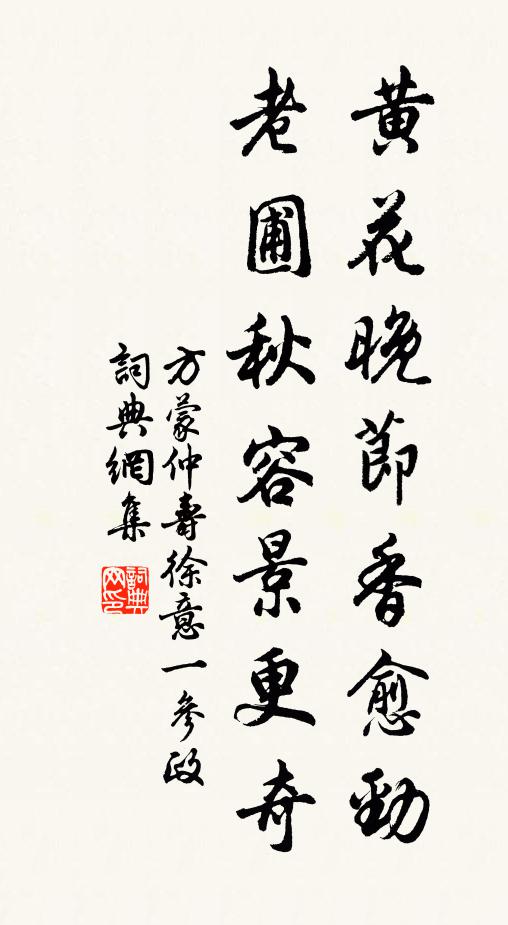 黃花晚節香愈勁
老圃秋容景更奇
方蒙仲壽徐意一參政
詞典網集
詞典網印